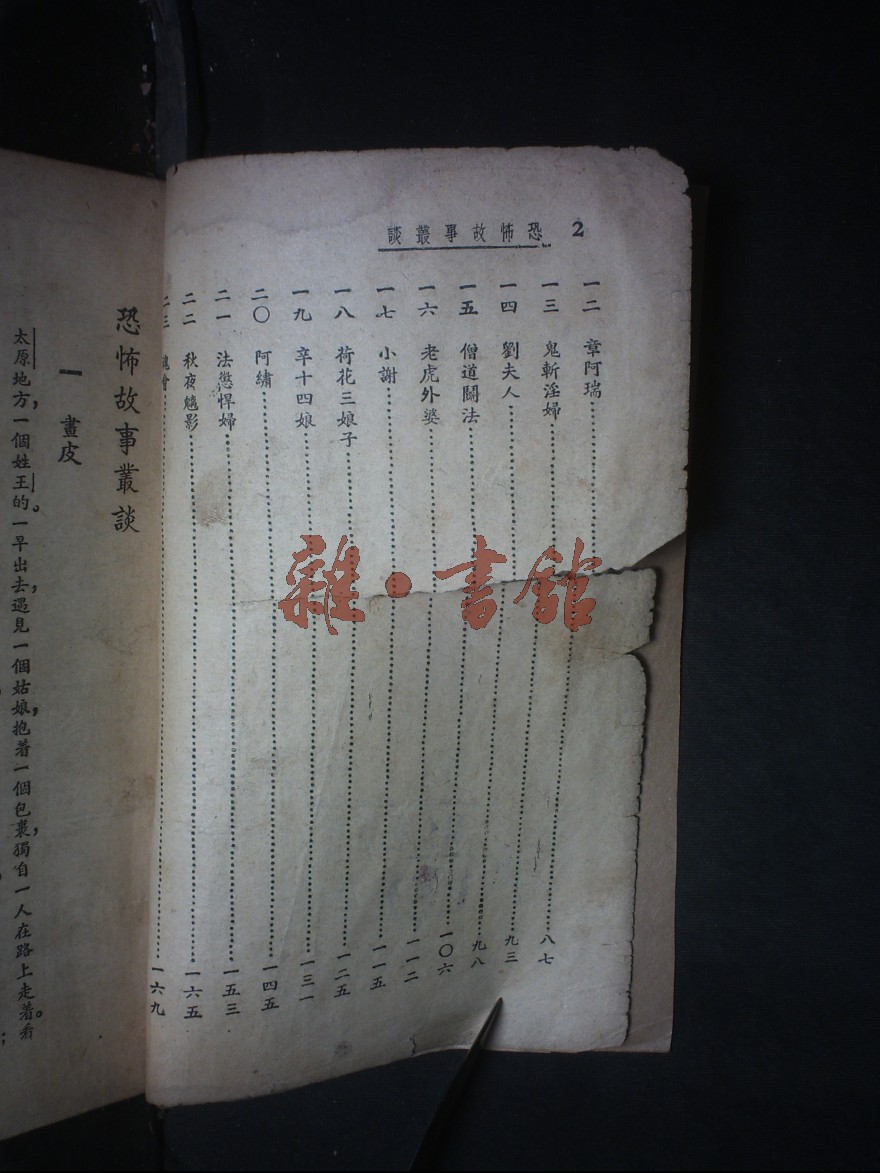 恐怖故事叢談 2
一二 章阿瑞……八七
一三 鬼斬淫婦……九三
一四 劉夫人……九八
一五 僧道鬭法……一〇六
一六 老虎外婆……一一二
一七 小謝……一一五
一八 荷花三娘子……一二五
一九 辛十四娘……一三一
二〇 阿繡……一四五
二一 法懲悍婦……一五三
二二 秋夜魑影……一六五
二三 會……一六九
恐怖故事叢談
一 畫皮
太原地方，一個姓王的。一早出去，遇見一個姑娘，抱着一個包裹，獨自一人在路上走着。看
雜·書館